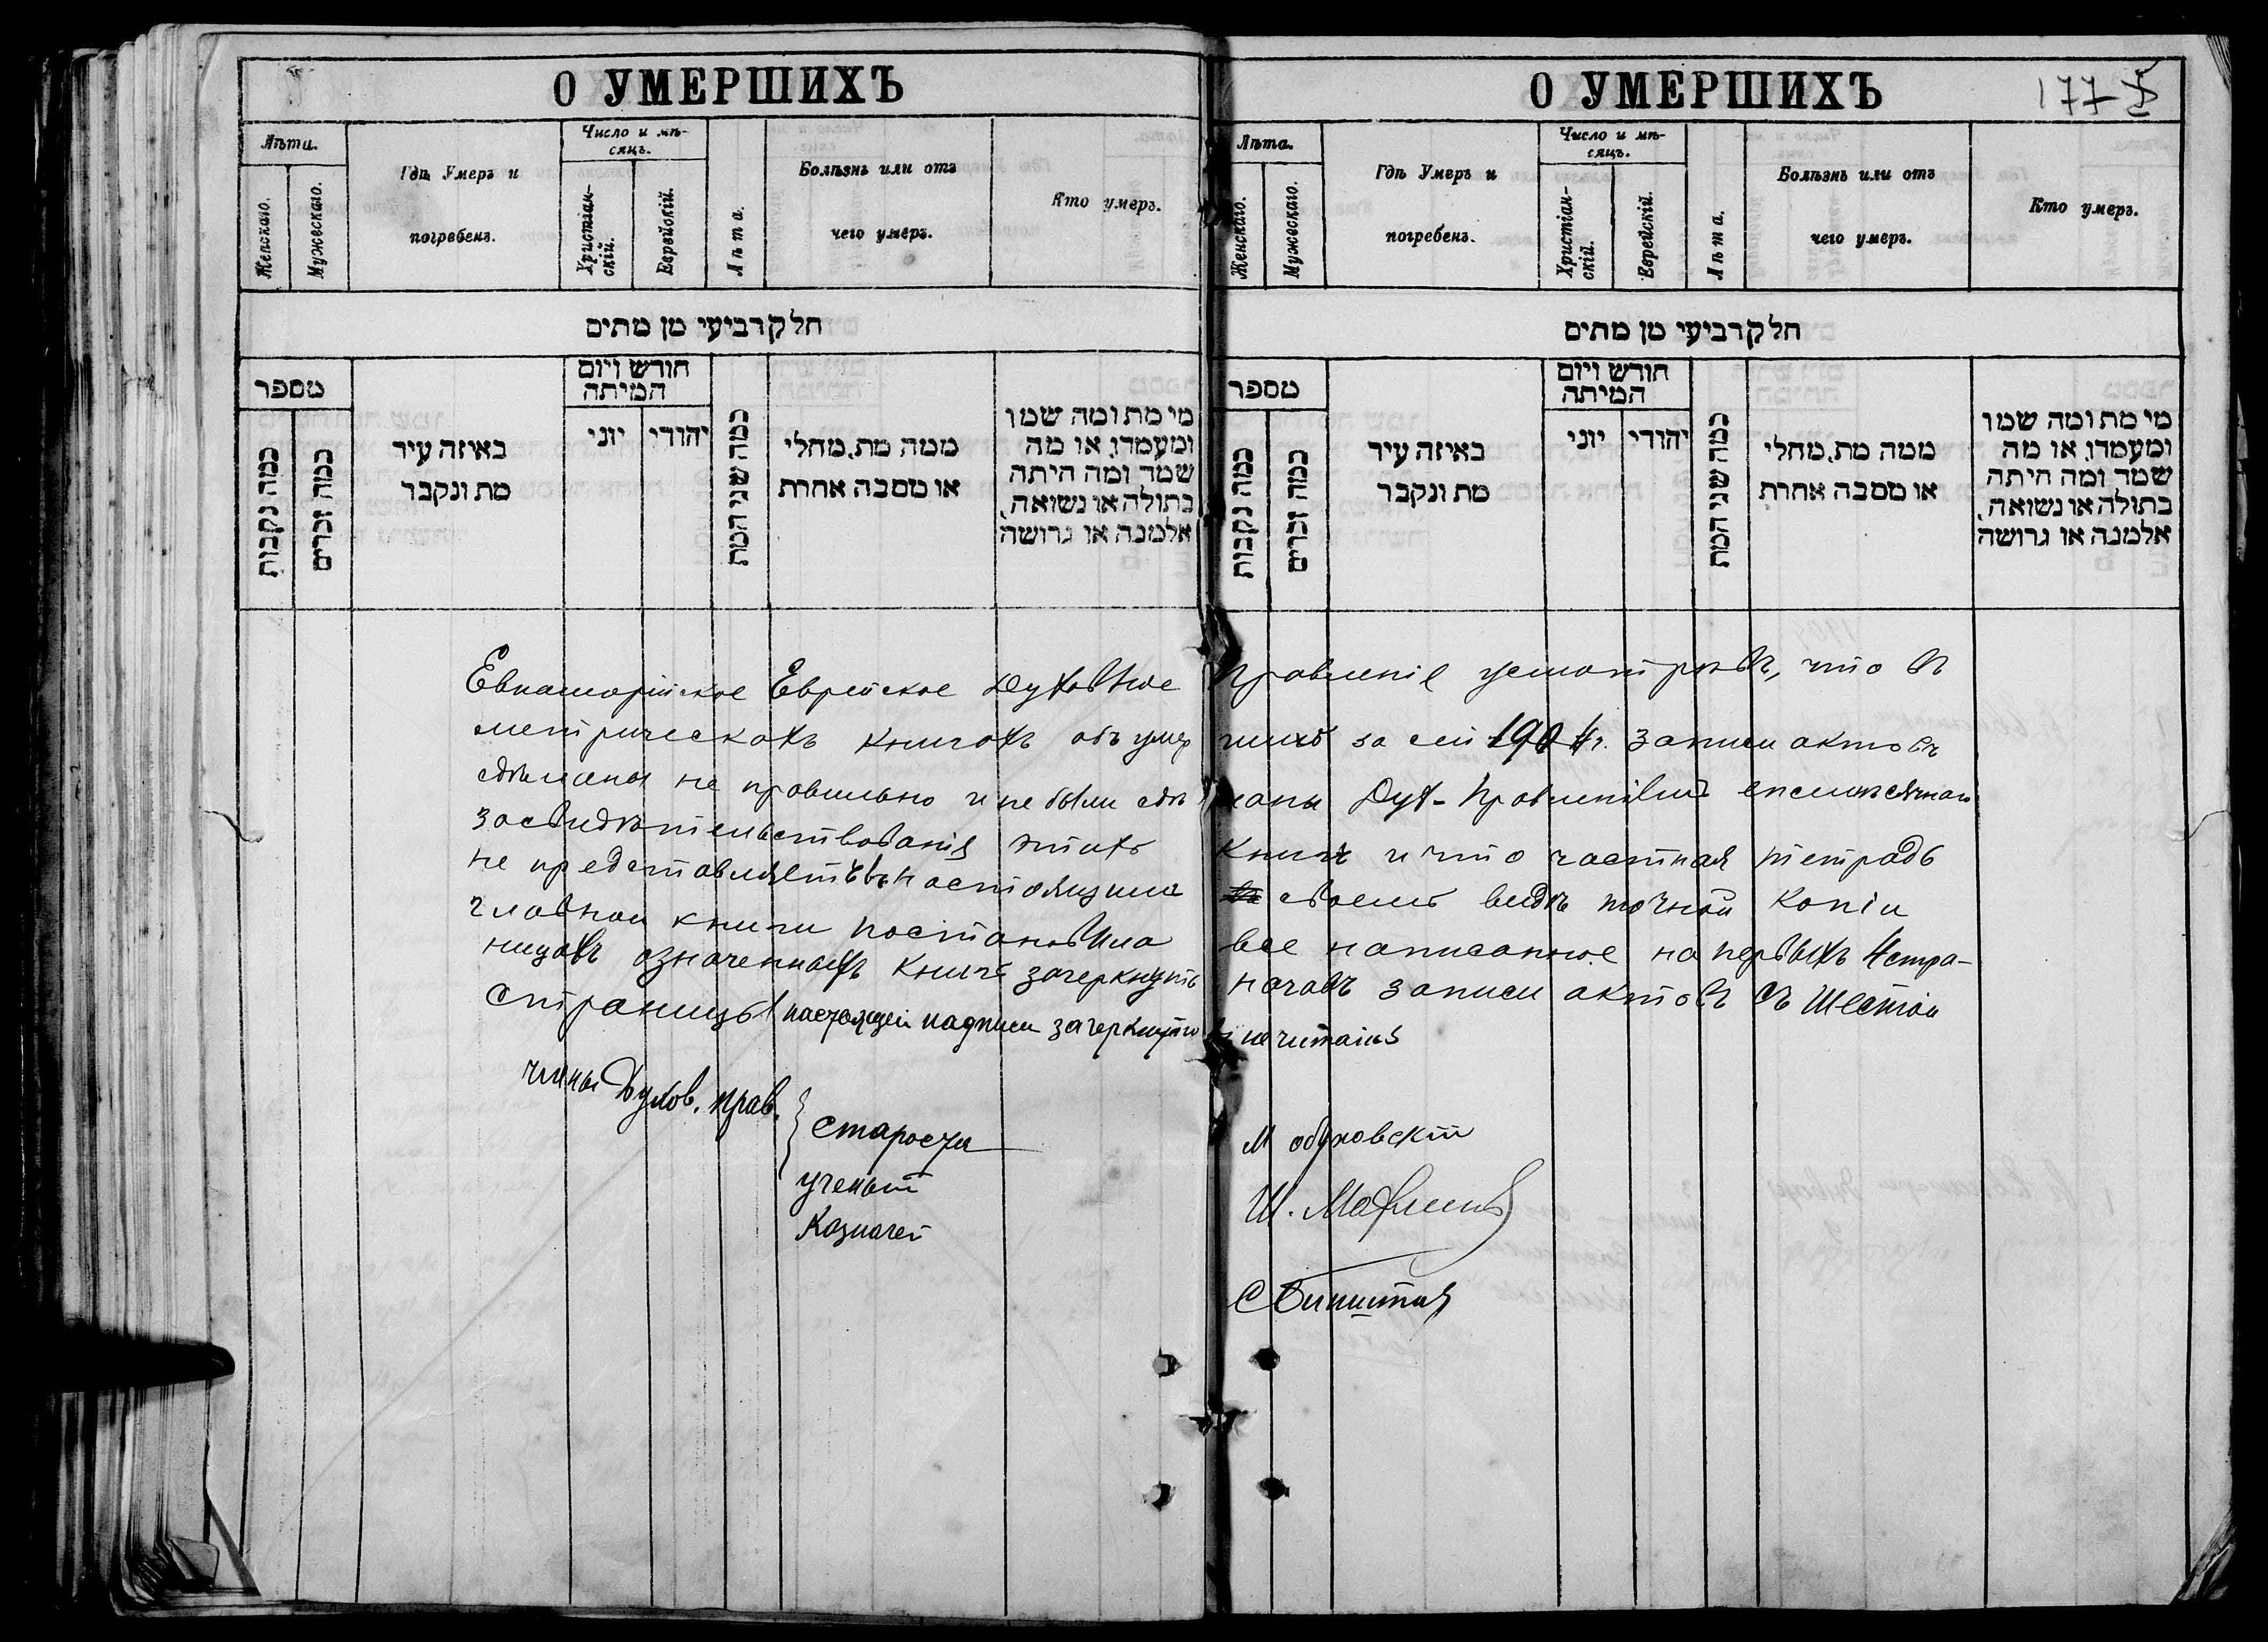 О УМЕРШИХЪ
Лѣта.
Женскаго.
Мужескаго.
Гдѣ Умеръ и
погребенъ.
Число и мѣ-
сяцъ.
Христіан-
скій.
Еврейскій.
Лѣта.
Болѣзнь или отъ
чего умеръ.
Кто умеръ.
חלק רביעי מן מתים
מספר
כמה נקבות
כמה זכרים
באיזה עיר
מת ונקבר
חורש ויום
המיתה
יוני
יהודי
כמה שני המת
ממה מת, מחלי
או מסבה אחרת
מי מת ומה שמו
ומעמדו, או מה
שמד ומה היתה
בתולה או נשואה,
אלמנה או גרושה
О УМЕРШИХЪ
177
Лѣта.
Женскаго.
Мужескаго.
Гдѣ Умеръ и
погребенъ.
Число и мѣ-
сяцъ.
Христіан-
скій.
Еврейскій.
Лѣта.
Болѣзнь или отъ
чего умеръ.
Кто умеръ.
חלק רביעי מן מתים
מספר
כמה נקבות
כמה זכרים
באיזה עיר
מת ונקבר
חורש ויום
המיתה
יוני
יהודי
כמה שני המת
ממה מת, מחלי
או מסבה אחרת
מי מת ומה שמו
ומעמדו, או מה
שמד ומה היתה
בתולה או נשואה,
אלמנה או גרושה
Евпаторійское Еврейское Духовное Правленіе усмотрѣвъ, что въ
метрическахъ книгахъ объ умершихъ за сей 1904 г. записи актовъ
сдѣланы не правильно и не были сдѣланы Дух. Правленіемъ ежемѣсячная
засвидѣтельствованія этихъ книгъ и что частная тетрадь
не представляетъ въ настоящимъ своемъ видѣ точной копіи
главной книги постановила все написанное на первыхъ 4 стра-
ницахъ означенныхъ книгъ зачеркнуть начавъ записи актовъ съ шестой
страницы настоящей надписи зачеркнуто не читать
члены Духов. прав.
Староста М Обуховскій
ученый Ш.
Казначей С